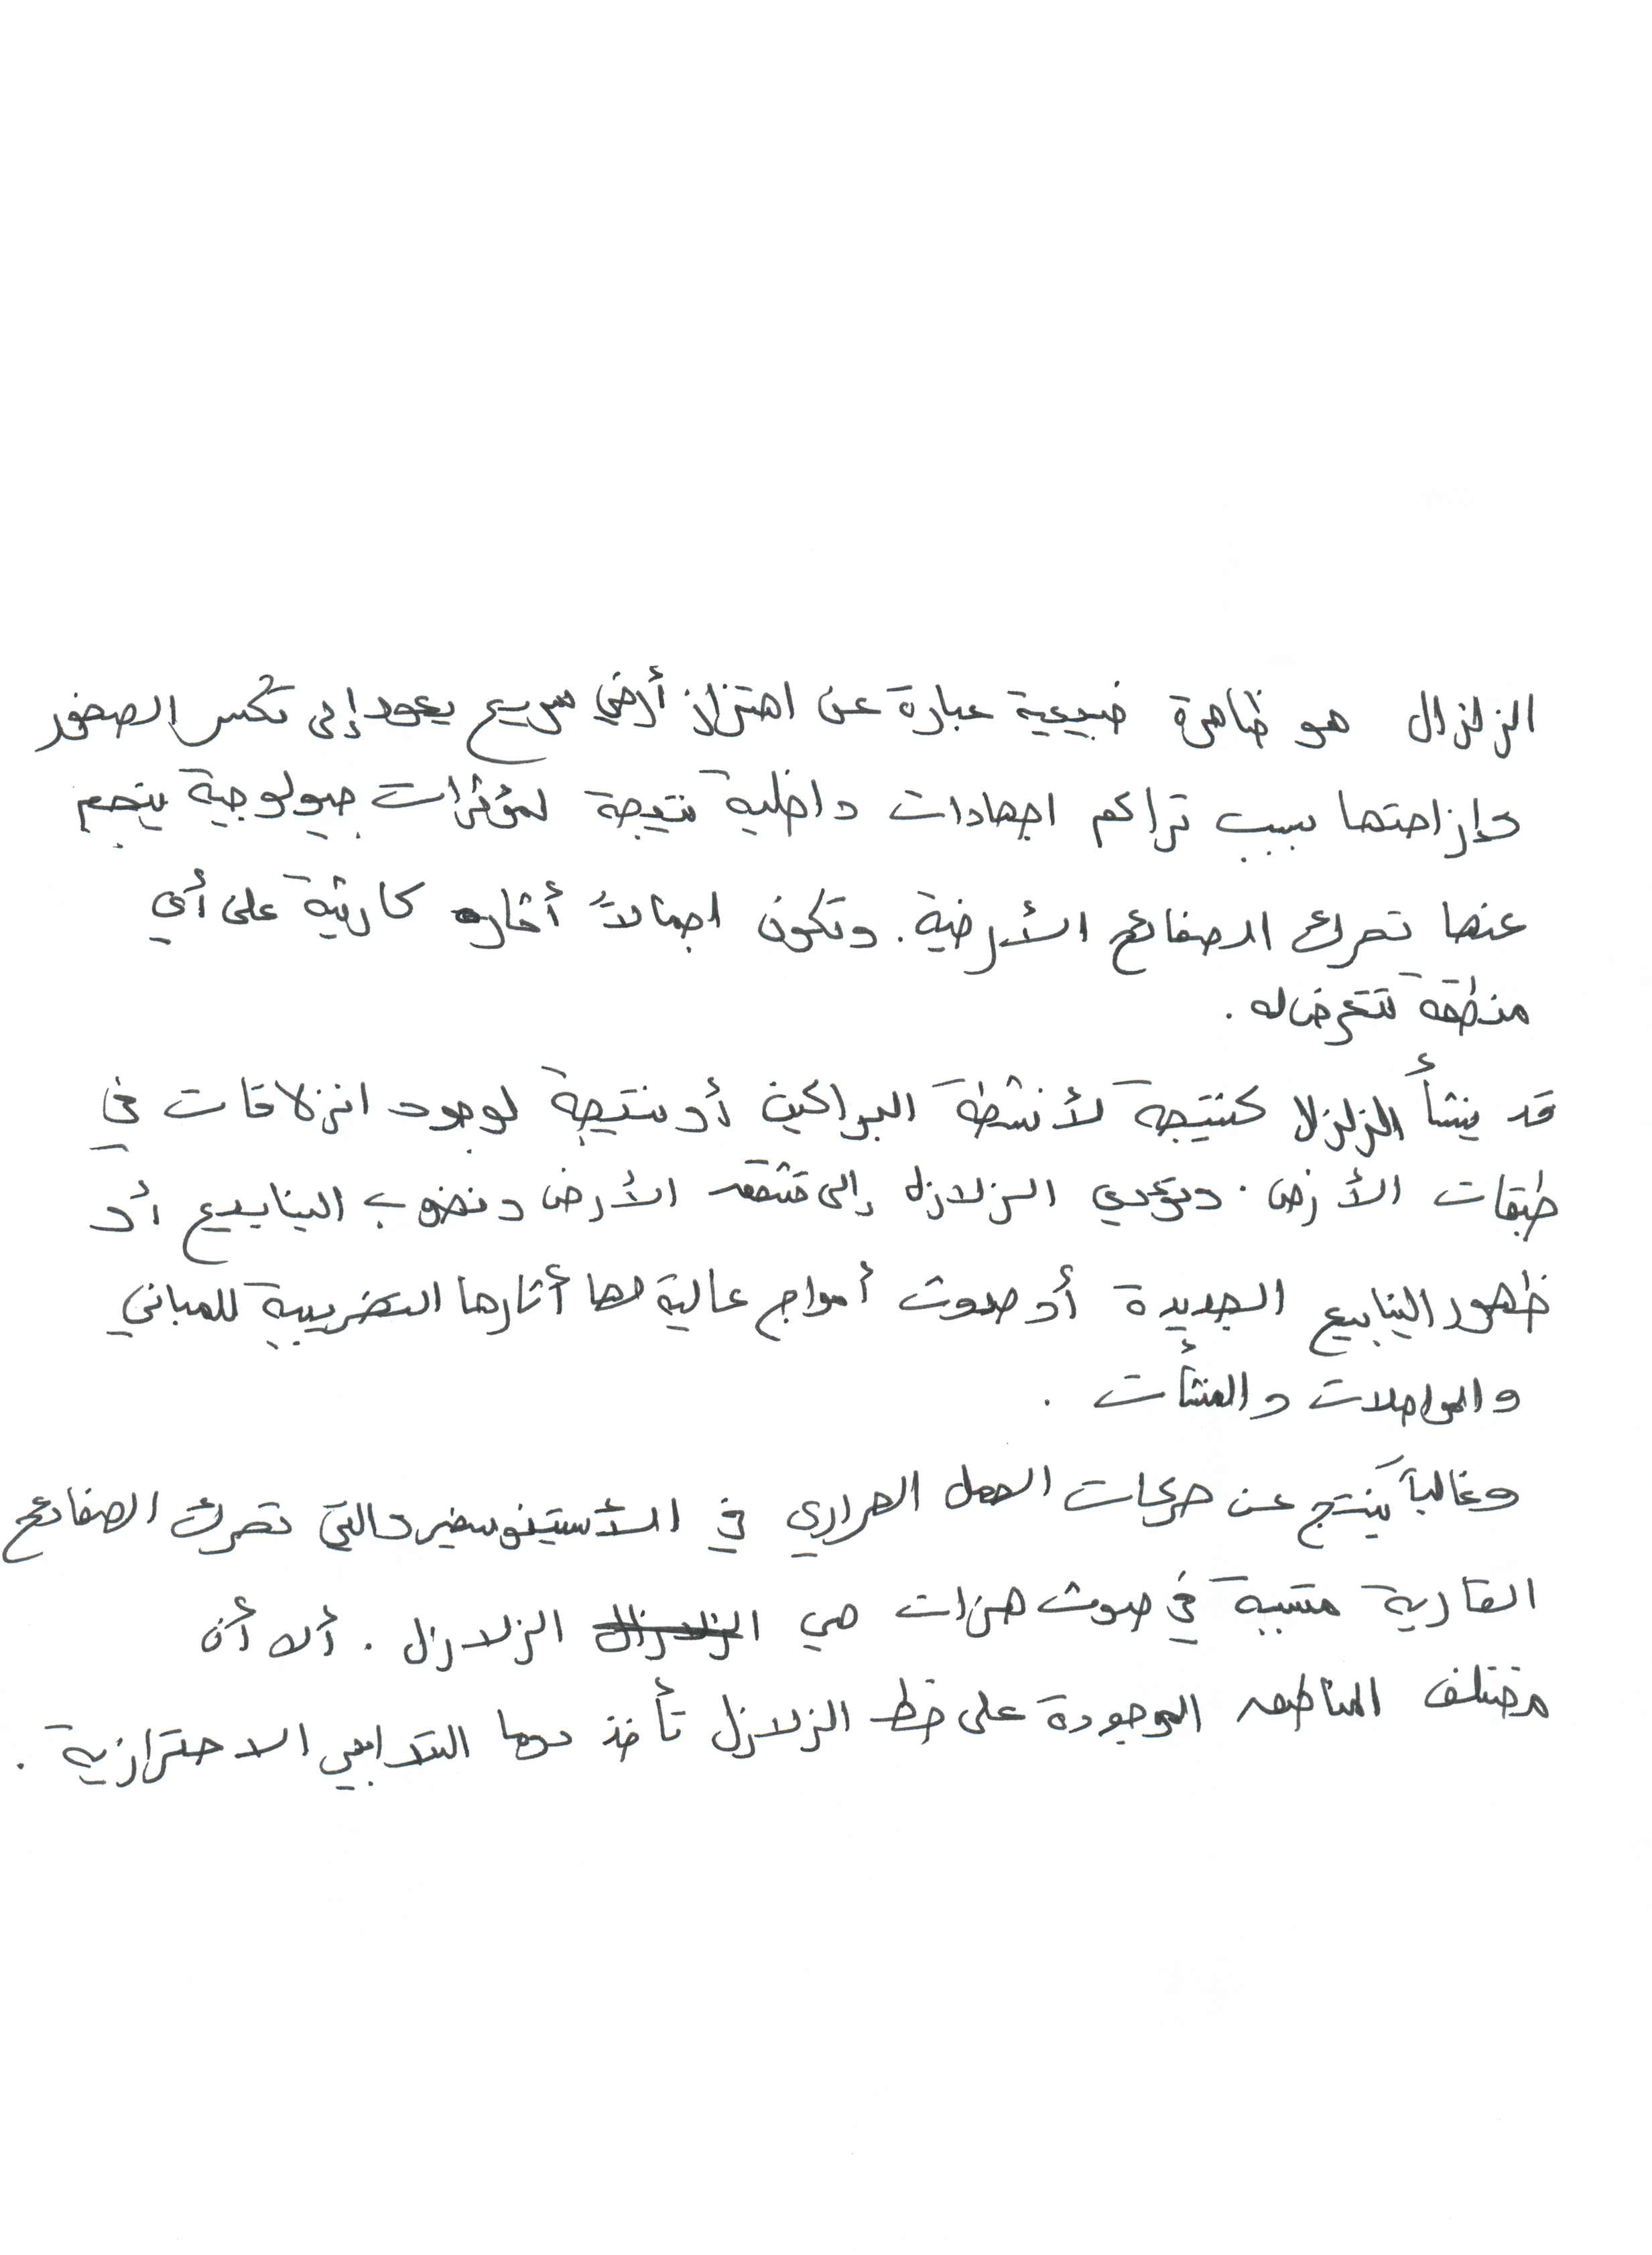 الزلزال هو ظاهرة طبيعية عبارة عن اهتزاز أرضي سريع يعود إلى تكسر الصخور
وإزاحتها بسبب تراكم اجهادات داخلية نتيجة لمؤثرات جيولوجية ينجم
عنها تحرك الصفائح الأرضية. وتكون اجمالاً أثاره كارثية على أي
منطقة تتعرض له .
قد ينشأ الزلزال كنتيجة لأنشطة البراكين أو نتيجة لوجود انزلاقات في
طبقات الأرض . وتؤدي الزلازل إلى تشقق الأرض ونضوب الينابيع أو
ظهور الينابيع الجديدة أو حدوث أمواج عالية لها أثارها التخريبية للمباني
والمواصلات والمنشأت .
وغالباً ينتج عن حركات الحمل الحراري في الأستينوسفير والتي تحرك الصفائح
القارية متسببة في حدوث هزات هي الزلازل . ألا أن
مختلف المناطق الموجودة على خط الزلازل تأخذ دوما التدابير الاحترازية .